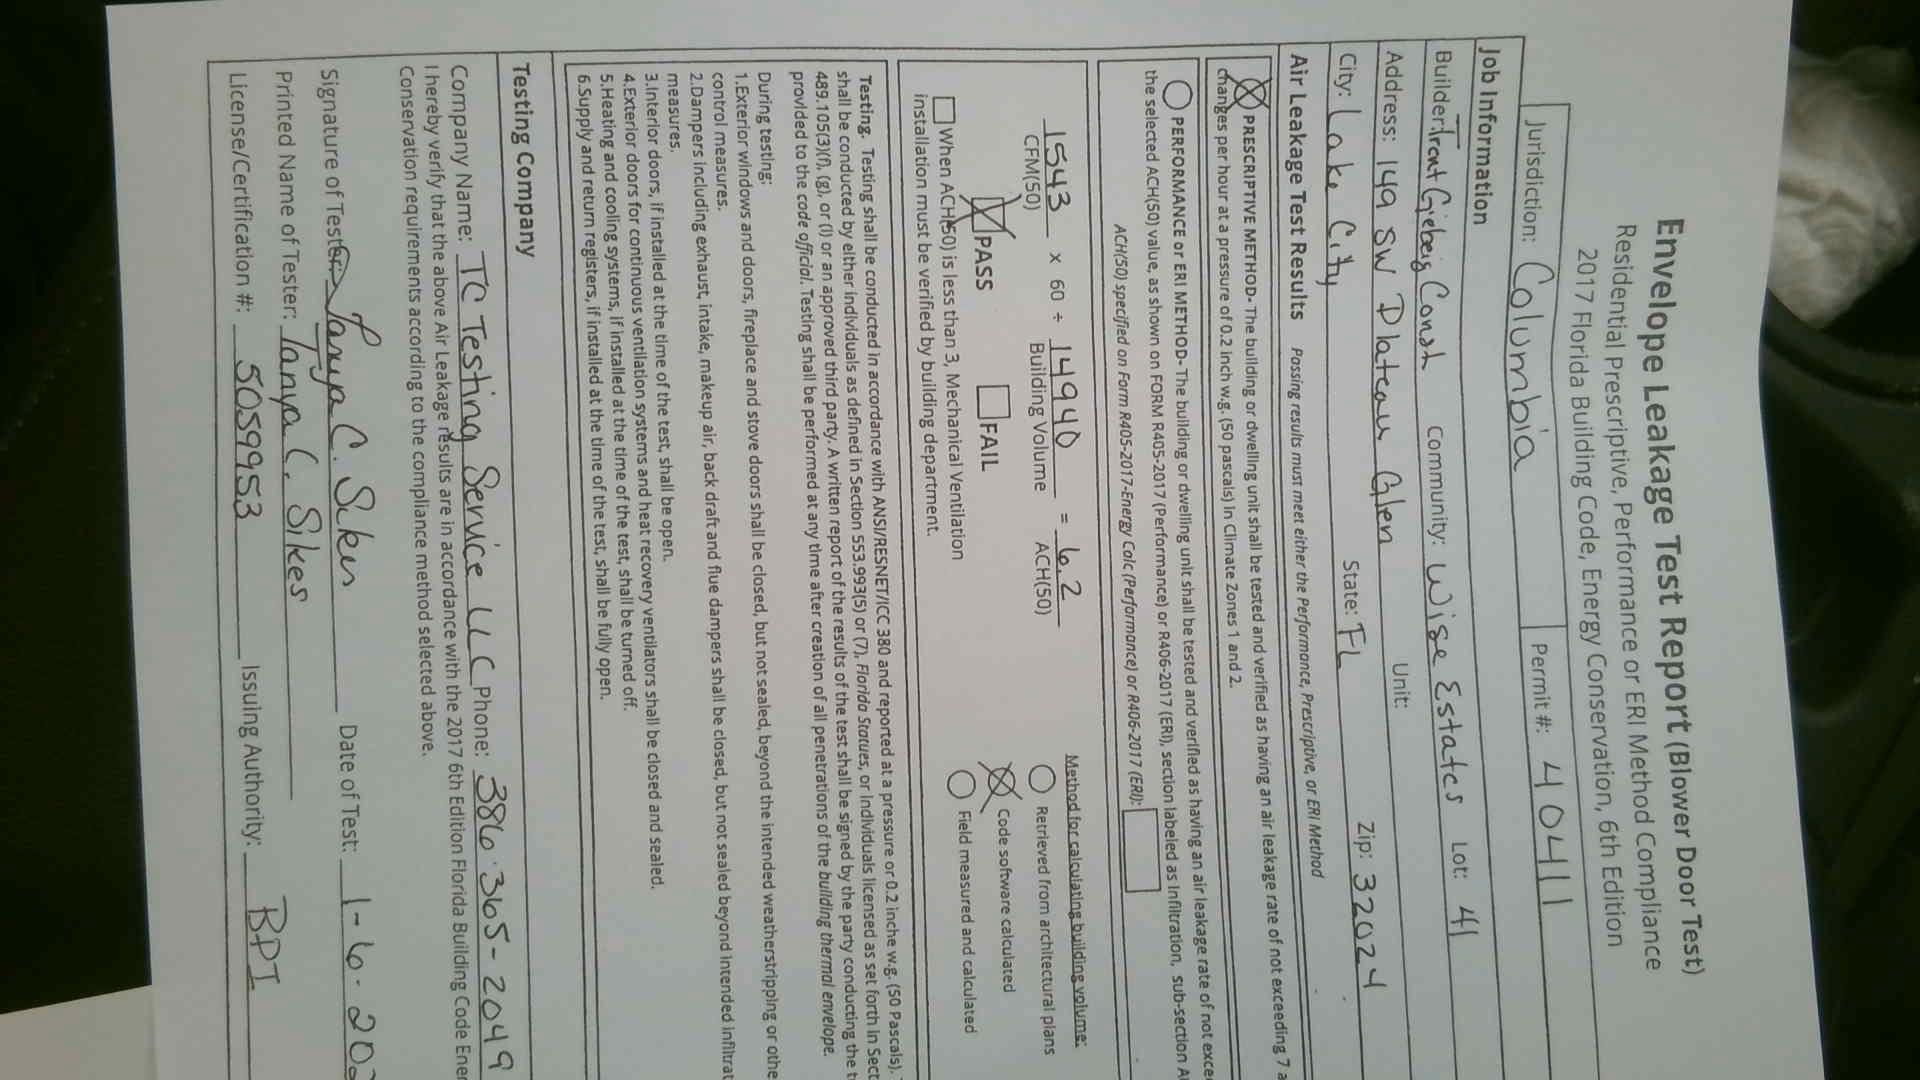 Envelope Leakage Test Report (Blower Door Test)
Residential Prescriptive, Performance or ERI Method Compliance
2017 Florida Building Code, Energy Conservation, 6th Edition
Jurisdiction: Columbia Permit #: 40411
Job Information
Builder: Trent Giebeig Const Community: Wise Estates Lot: 41
Address: 149 SW Plateau Glen Unit:
City: Lake City State: FL Zip: 32024
Air Leakage Test Results Passing results must meet either the Performance, Prescriptive, or ERI Method
PRESCRIPTIVE METHOD- The building or dwelling unit shall be tested and verified as having an air leakage rate of not exceeding 7 a
changes per hour at a pressure of 0.2 inch w.g. (50 pascals) in Climate Zones 1 and 2.
PERFORMANCE or ERI METHOD- The building or dwelling unit shall be tested and verified as having an air leakage rate of not excee
the selected ACH(50) value, as shown on FORM R405-2017 (Performance) or R406-2017 (ERI), section labeled as infiltration, sub-section A
ACH(50) specified on Form R405-2017-Energy Calc (Performance) or R406-2017 (ERI):
1543 x 60 ÷ 14940 = 6.2
CFM(50) Building Volume ACH(50)
PASS FAIL
When ACH(50) is less than 3, Mechanical Ventilation
installation must be verified by building department.
Method for calculating building volume:
Retrieved from architectural plans
Code software calculated
Field measured and calculated
Testing. Testing shall be conducted in accordance with ANSI/RESNET/ICC 380 and reported at a pressure or 0.2 inche w.g. (50 Pascals).
shall be conducted by either individuals as defined in Section 553.993(5) or (7), Florida Statues, or individuals licensed as set forth in Sect
489.105(3)(f), (g), or (i) or an approved third party. A written report of the results of the test shall be signed by the party conducting the t
provided to the code official. Testing shall be performed at any time after creation of all penetrations of the building thermal envelope.
During testing:
1.Exterior windows and doors, fireplace and stove doors shall be closed, but not sealed, beyond the intended weatherstripping or othe
control measures.
2.Dampers including exhaust, intake, makeup air, back draft and flue dampers shall be closed, but not sealed beyond intended infiltrat
measures.
3.Interior doors, if installed at the time of the test, shall be open.
4.Exterior doors for continuous ventilation systems and heat recovery ventilators shall be closed and sealed.
5.Heating and cooling systems, if installed at the time of the test, shall be turned off.
6.Supply and return registers, if installed at the time of the test, shall be fully open.
Testing Company
Company Name: TC Testing Service LLC Phone: 386-365-2049
I hereby verify that the above Air Leakage results are in accordance with the 2017 6th Edition Florida Building Code Ener
Conservation requirements according to the compliance method selected above.
Signature of Tester: Tanya C. Sikes Date of Test: 1-6-202
Printed Name of Tester: Tanya C. Sikes
License/Certification #: 5059953 Issuing Authority: BPI